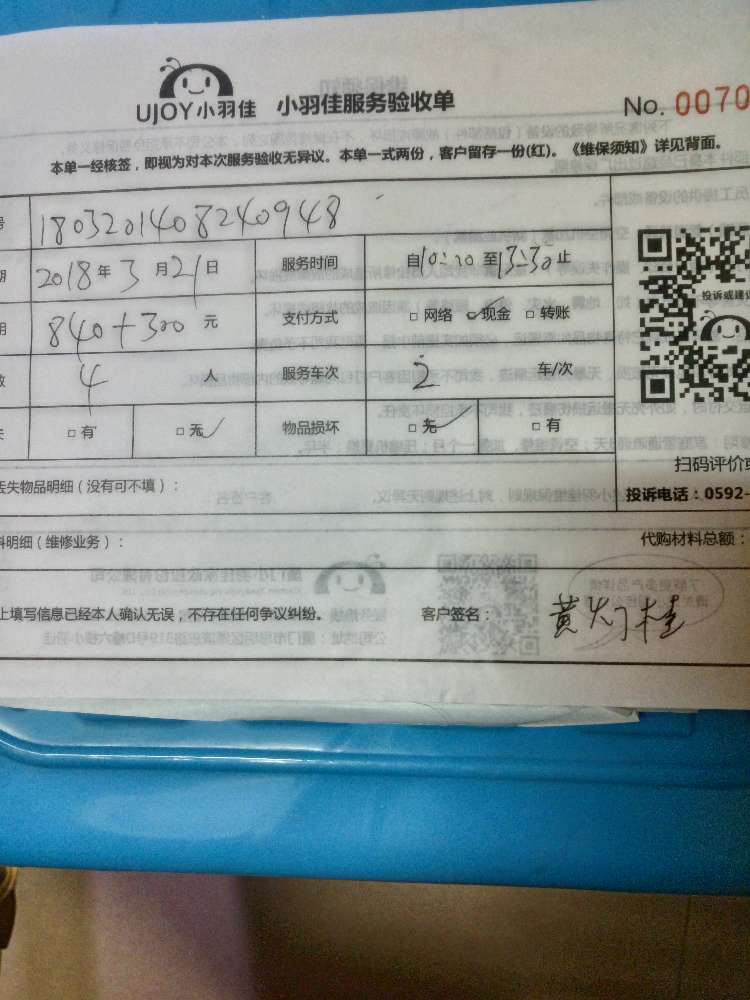 UJOY小羽佳 小羽佳服务验收单 No. 0070
本单一经核签，即视为对本次服务验收无异议。本单一式两份，客户留存一份(红)。《维保须知》详见背面。
号 1803201408240948
期 2018年3月21日 服务时间 自10:20至13:30止
用 840+300元 支付方式 □网络 ☑现金 □转账
数 4人 服务车次 2车/次
失 □有 □无✓ 物品损坏 □无✓ □有
投诉或建议
扫码评价或
丢失物品明细（没有可不填）： 投诉电话：0592-
料明细（维修业务）： 代购材料总额：
上填写信息已经本人确认无误，不存在任何争议纠纷。 客户签名： 黄灯桂